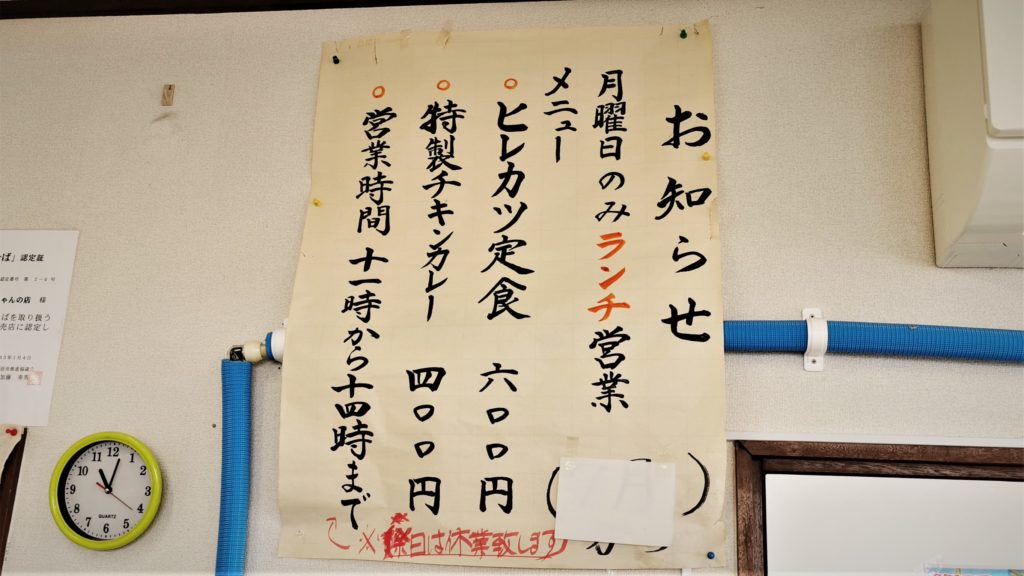 お知らせ
月曜日のみランチ営業
メニュー
○ヒレカツ定食 六〇〇円
○特製チキンカレー 四〇〇円
○営業時間 十一時から十四時まで
※ 日は休業致します
ば」認定証
ちゃんの店 様
ばを取り扱う
売店に認定し
12
1
2
3
4
5
6
7
8
9
10
11
QUARTZ